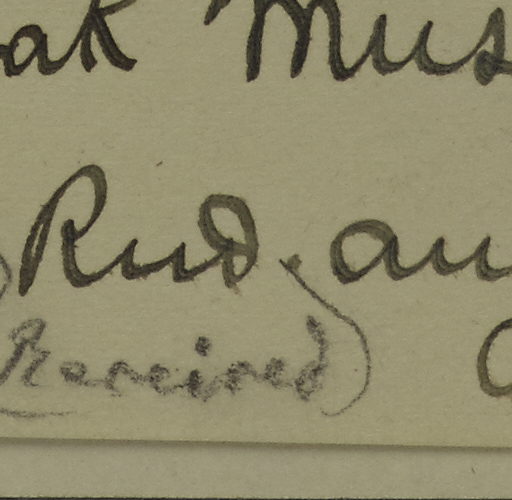 ak Mus
Rud. au
(Received)